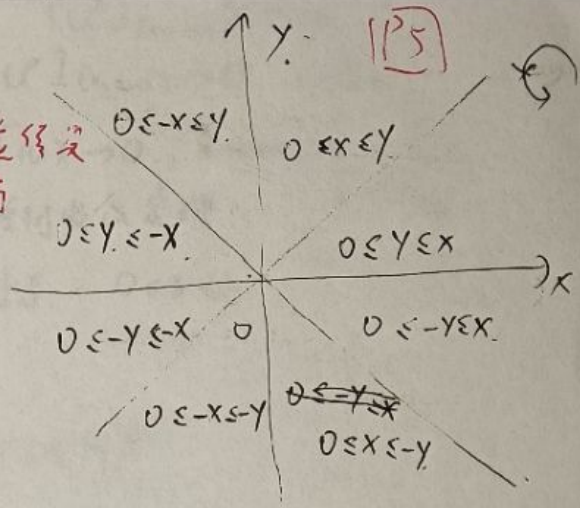 Y.
P5
0≤-X≤Y.
0≤X≤Y.
0≤Y.≤-X.
0≤Y≤X
X
0≤-Y≤-X
0
0≤-Y≤X.
0≤-X≤-Y
0≤X≤-Y.